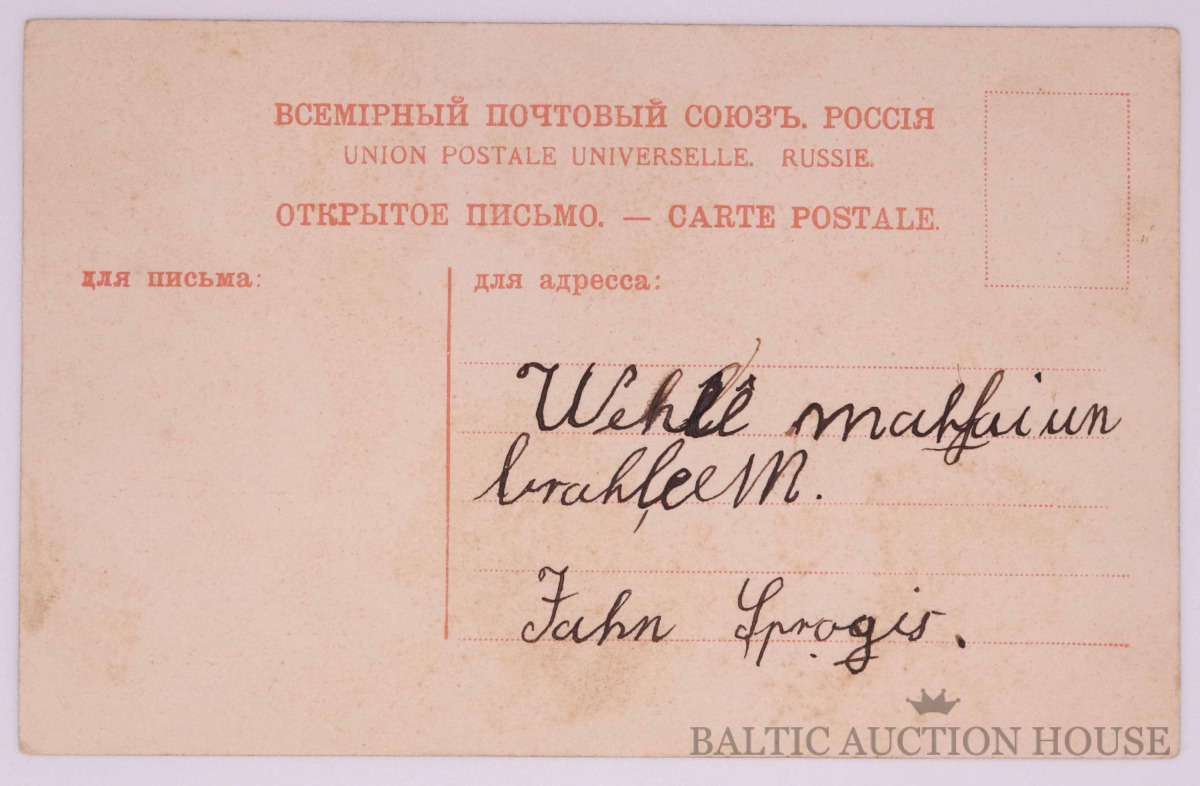 ВСЕМІРНЫЙ ПОЧТОВЫЙ СОЮЗЪ. РОССІЯ
UNION POSTALE UNIVERSELLE. RUSSIE.
ОТКРЫТОЕ ПИСЬМО. — CARTE POSTALE.
для письма:
для адресса:
mahſai un
brahleem.
Jahn Sprogis.
BALTIC AUCTION HOUSE